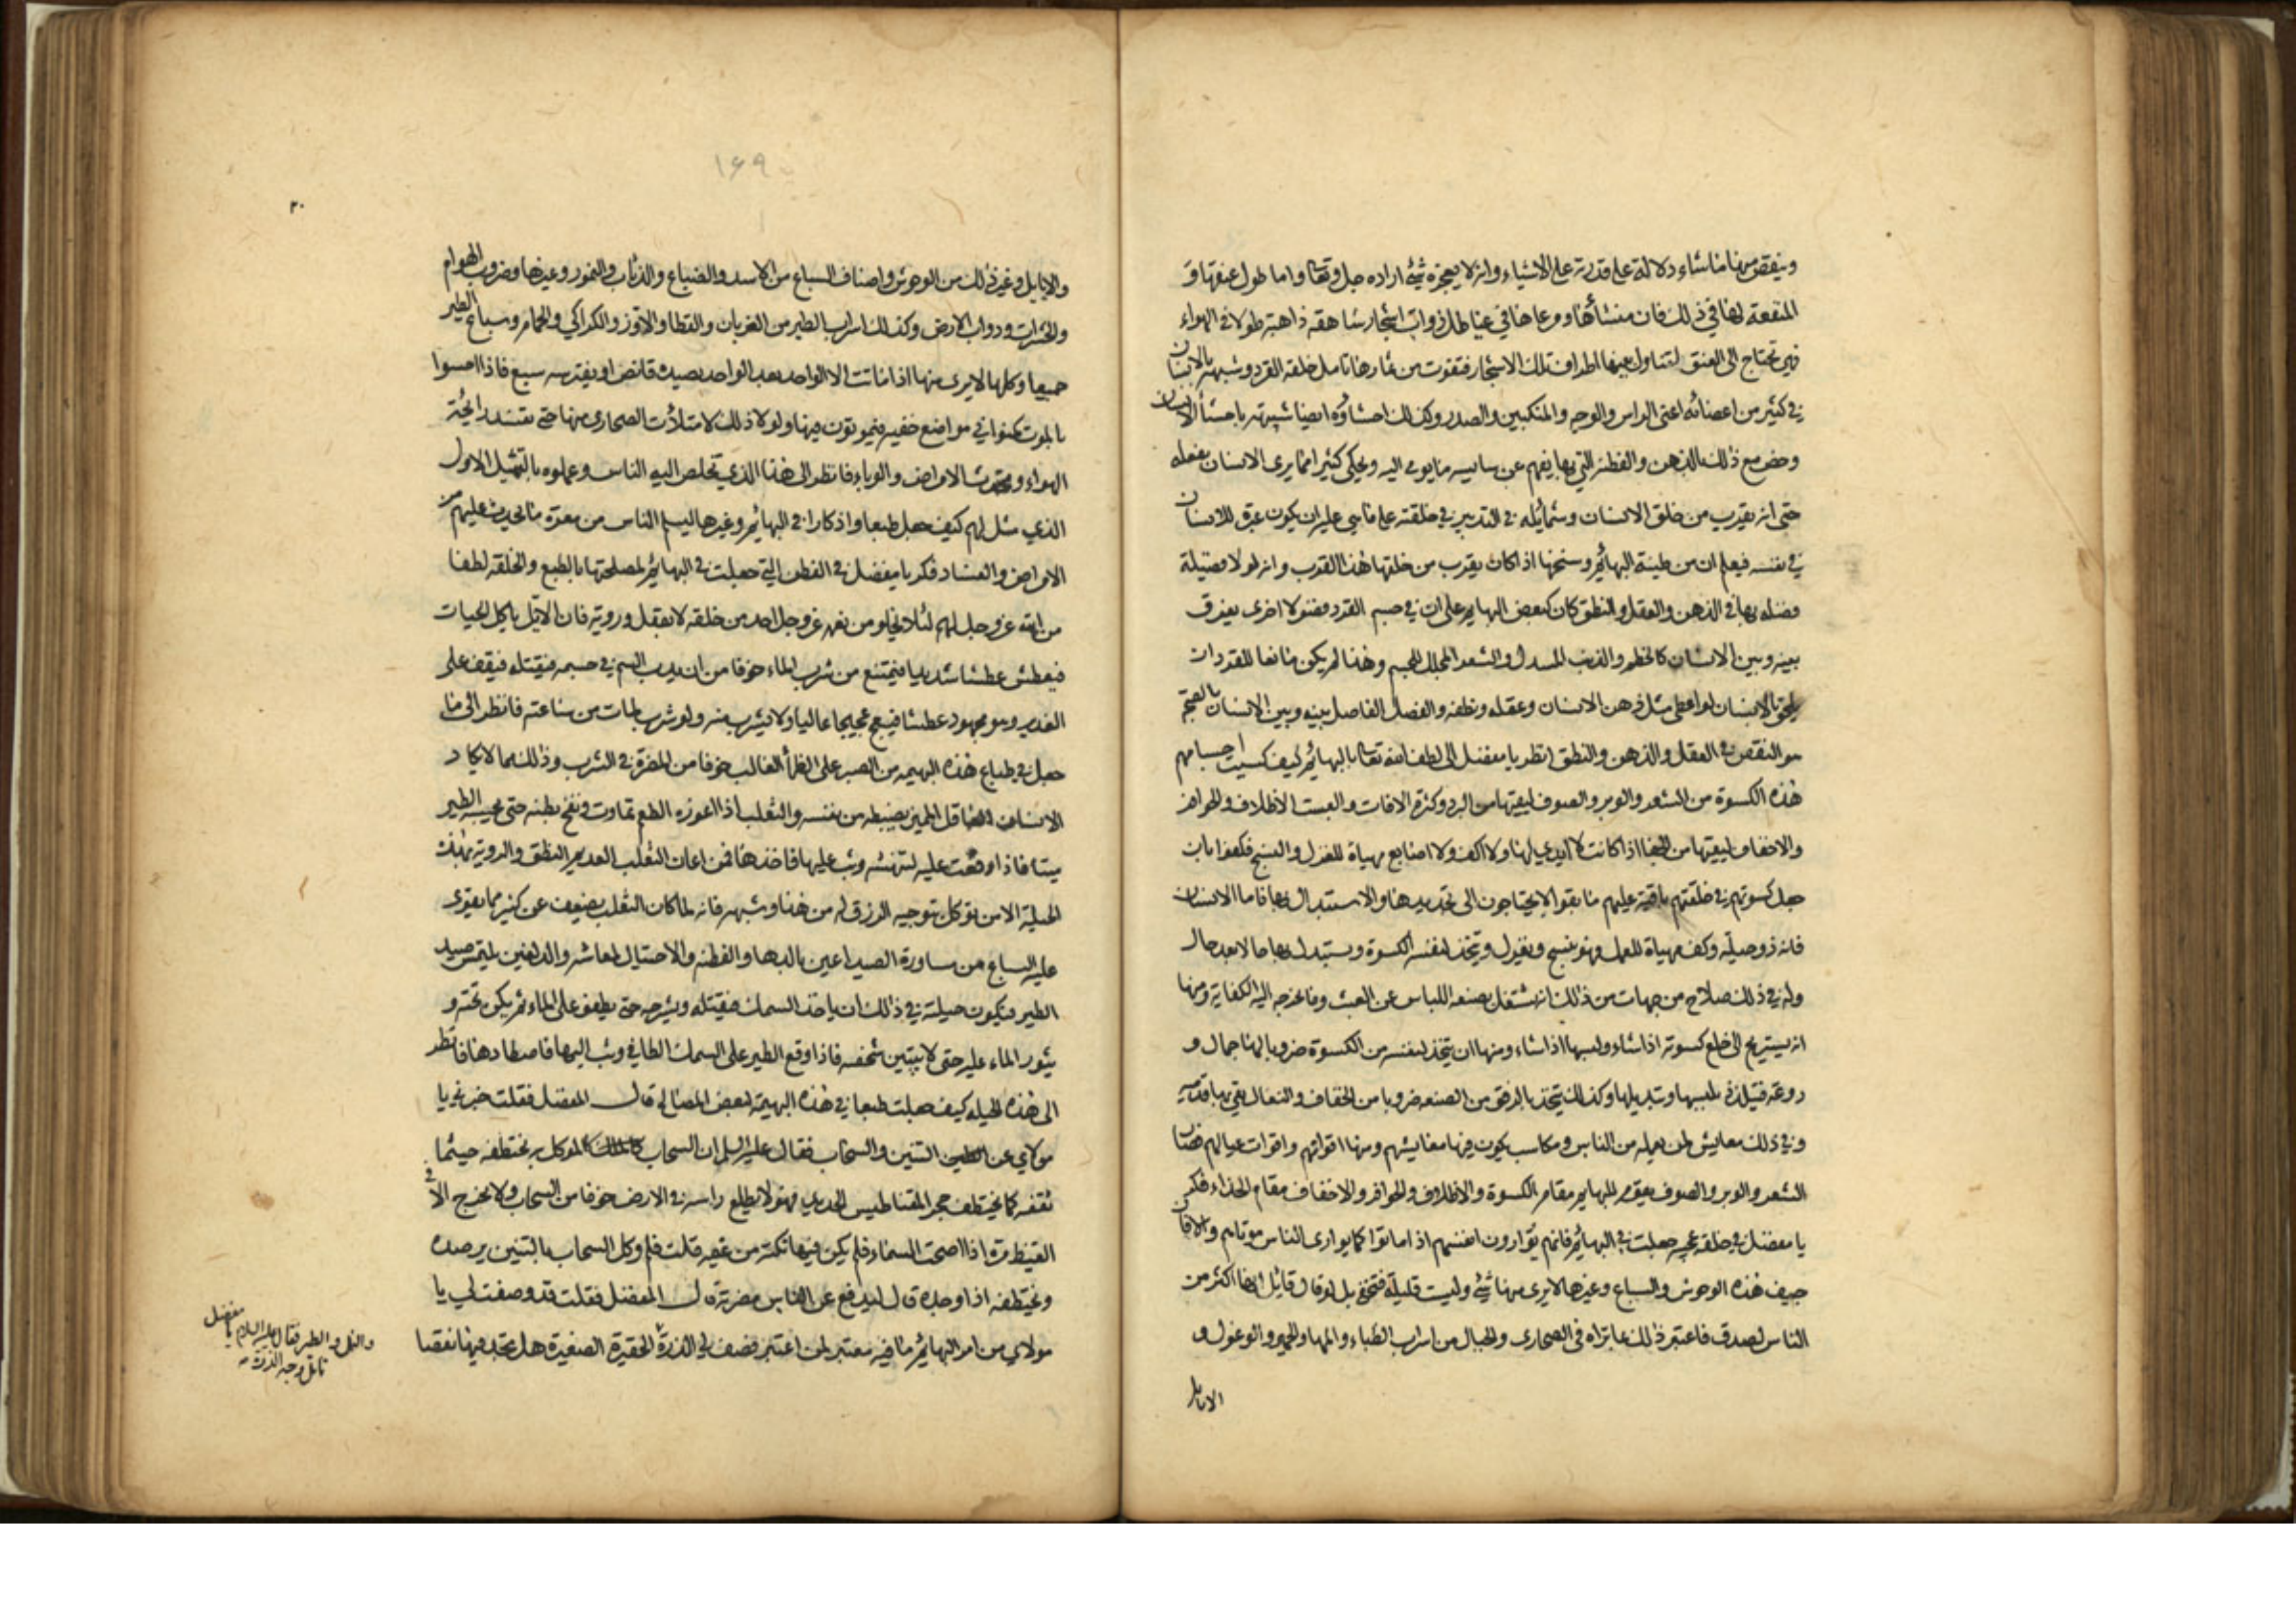 وينقص منها ما شاء دلالة على قدرته على الاشياء وانه لا يعجزه شيء اراده جل وتعالى واما طول عنقها و
المنفعة لها في ذلك فان منشأها ومرعاها في غياطل ذوات اشجار شاهقه ذاهبة طولا في الهواء
فهي تحتاج الى العنق لتتناول بفيها اطراف تلك الاشجار فتقوت من ثمارها تأمل خلقة القرد وشبهه بالانسان
في كثير من اعضائه اعني الراس والوجه والمنكبين والصدر وكذلك احشاؤه ايضا شبيهة باحشأ الانسان
وخص مع ذلك بالذهن والفطنة التي بها يفهم عن سايسه ما يومي اليه ويحكي كثيرا مما يرى الانسان يفعله
حتى انه يقرب من خلق الانسان وشمائله في التدبير في خلقته على ما هي عليه ان يكون عبرة للانسان
في نفسه فيعلم انه من طينة البهائم وسنخها اذ كان يقرب من خلقها هذا القرب وانه لولا فضيلة
فضله بها في الذهن والعقل والنطق كان كبعض البهايم على ان في جسم القرد فضولا اخرى يفرق
بينه وبين الانسان كالخطم والذنب المسدل والشعر المجلل للجسم وهذا لم يكن مانعا للقرد ان
يلحق بالانسان لو اعطي مثل ذهن الانسان وعقله ونطقه والفصل الفاصل بينه وبين الانسان بالصحة
هو النقص في العقل والذهن والنطق انظر يا مفضل الى لطف الله تعالى بالبهائم كيف كسيت اجسامهم
هذه الكسوة من الشعر والوبر والصوف ليقيها من البرد وكثرة الافات والبست الاظلاف والحوافر
والاخفاف ليقيها من الحفا اذ كانت لا ايدي لها ولا اكف ولا اصابع مهياة للغزل والنسج فكفوا بان
جعل كسوتهم في خلقتهم باقية عليهم ما بقوا لا يحتاجون الى تجديدها والاستبدال بها فاما الانسان
فانه ذو حيلة وكف مهياة للعمل فهو ينسج ويغزل ويتخذ لنفسه الكسوة ويستبدل بها حالا بعد حال
وله في ذلك صلاح من جهات من ذلك انه يشتغل بصنعه اللباس عن العبث وما تخرجه اليه الكفاية ومنها
انه يستريح الى خلع كسوته اذا شاء ولبسها اذا شاء ومنها ان يتخذ لنفسه من الكسوة ضروبا لها جمال و
روعة فيتلذذ بلبسها وتبديلها وكذلك يتخذ بالرفق من الصنعه ضروبا من الخفاف والنعال يقي بها قدميه
وفي ذلك معايش لمن يعمله من الناس ومكاسب يكون فيها معايشهم ومنها اقواتهم واقوات عيالهم فصار
الشعر والوبر والصوف يقوم للبهايم مقام الكسوة والاظلاف والحوافر والاخفاف مقام الحذاء فكر
يا مفضل في خلقة عجيبه جعلت في البهائم فانهم يوارون انفسهم اذا ماتوا كما يواري الناس موتاهم والا فاين
جيف هذه الوحوش والسباع وغيرها لا يرى منها شيء وليست قليلة فتخفى بل لو قال قائل انها اكثر من
الناس لصدق فاعتبر ذلك بما تراه في الصحاري والجبال من اسراب الظباء والمها والحمير والوعول و
الايايل
١۶٩
٣٠
والايايل وغير ذلك من الوحوش واصناف السباع من الاسد والضباع والذئاب والنمور وغيرها وضروب الهوام
والحشرات ودواب الارض وكذلك اسراب الطير من الغربان والقطا والاوز والكراكي والحمام وسباع الطير
جميعا وكلها لا يرى منها اذا ماتت الا الواحد بعد الواحد يصيده قانص او يفترسه سبع فاذا احسوا
بالموت كمنوا في مواضع خفيه فيموتون فيها ولولا ذلك لامتلأت الصحاري منها حتى تفسد رائحة
الهواء ويحدث الامراض والوباء فانظر الى هذا الذي يخلص اليه الناس وعملوه بالتمثيل الاول
الذي مثل لهم كيف جعل طبعا واذكارا في البهائم وغيرها ليسلم الناس من معرة ما يحدث عليهم من
الامراض والفساد فكر يا مفضل في الفطن التي جعلت في البهائم لمصلحتها بالطبع والخلقة لطفا
من الله عز وجل لهم لئلا يخلو من نعمه عز وجل احد من خلقه لا بعقل وروية فان الايل ياكل الحيات
فيعطش عطشا شديدا فيمتنع من شرب الماء خوفا من ان يدب السم في جسمه فيقتله فيقف على
الغدير وهو مجهود عطشا فيعج عجيجا عاليا ولا يشرب منه ولو شرب لمات من ساعته فانظر الى ما
جعل في طباع هذه البهيمه من الصبر على الظمأ الغالب خوفا من المضرة في الشرب وذلك مما لا يكاد
الانسان العاقل المميز يضبطه من نفسه والثعلب اذا اعوزه الطعم تماوت ونفخ بطنه حتى يحسبه الطير
ميتا فاذا وقعت عليه لتنهشه وثب عليها فاخذها فمن اعان الثعلب العديم النطق والروية بهذه
الحيلة الا من توكل بتوجيه الرزق له من هذا وشبهه فانه لما كان الثعلب يضعف عن كثير مما يقوى
عليه السباع من مساورة الصيد اعين بالدها والفطنة والاحتيال لمعاشه والدلفين يلتمس صيد
الطير فيكون حيلته في ذلك ان ياخذ السمك فيقتله ويشرحه حتى يطفو على الماء ثم يكمن تحته و
يثور الماء عليه حتى لا يتبين شخصه فاذا وقع الطير على السمك الطافي وثب اليها فاصطادها فانظر
الى هذه الحيله كيف جعلت طبعا في هذه البهيمة لبعض المصالح قال المفضل فقلت خبرني يا
مولاي عن التنين والسحاب فقال عليه السلم ان السحاب كالموكل به يختطفه حيثما
ثقفه كما يختطف حجر المقناطيس الحديد فهو لا يطلع راسه في الارض خوفا من السحاب ولا يخرج الا في
القيظ مرة اذا اصحت السماء فلم يكن فيها نكتة من غيمة قلت فلم وكل السحاب بالتنين يرصده
ويختطفه اذا وجده قال ليدفع عن الناس مضرته قال المفضل فقلت قد وصفت لي يا
مولاي من امر البهائم ما فيه معتبر لمن اعتبر فصف لي الذرة الحقيرة الصغيرة هل تجد فيها نقصا
والنمل والطير فقال عليه السلام يا مفضل
تأمل وجه الذرة